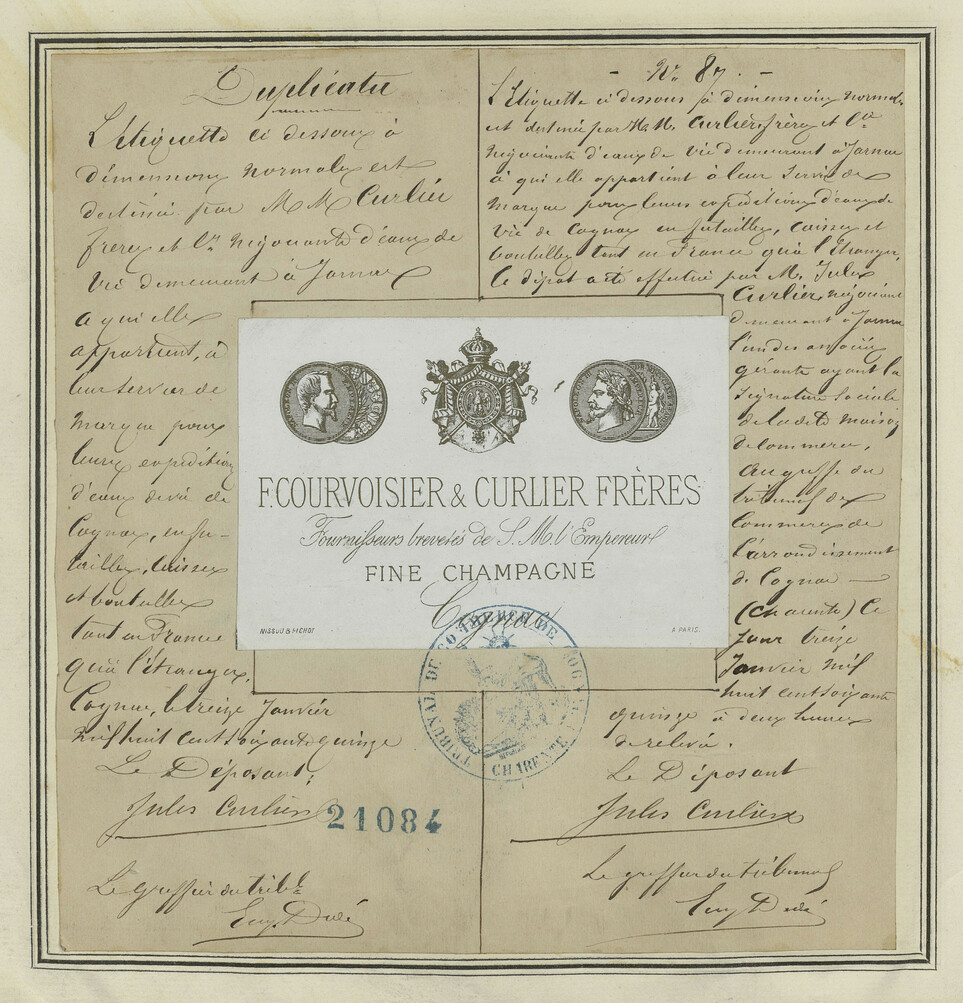 Duplicata
L'Etiquette ci dessous à
dimensions normales est
destinée par M M Curlier
frères et Cie négociants d'eaux de
vie demeurant à Jarnac
a qui elle
appartient, à
leur servir de
marque pour
leurs expéditions
d'eaux de vie de
Cognac, en fu-
tailles, caisses
et bouteilles
tant en France
qu'à l'étranger.
Cognac, le treize Janvier
mil huit cent soixante quinze
Le Déposant:
Jules Curlier
21084
Le greffier du tribl
N° 87.
L'Etiquette ci dessous à dimensions normales
est destinée par M.M. Curlier frères et Cie
négociants d'eaux de vie demeurant à Jarnac
à qui elle appartient à leur servir de
marque pour leurs expéditions d'eaux de
vie de Cognac en futailles, caisses et
bouteilles tant en France qu'à l'étranger,
Ce dépôt a été effectué par M. Jules
Curlier, négociant
demeurant à Jarnac
l'un des associés
gérants ayant la
signature sociale
de la dite maison
de commerce,
au greffe du
tribunal de
Commerce de
l'arrondissement
de Cognac
(Charente) le
jour treize
Janvier mil
huit cent soixante
quinze à deux heures
de relevée.
Le Déposant
Jules Curlier
Le greffier du tribunal
F. COURVOISIER & CURLIER FRÈRES
Fournisseurs brevetés de S. M. l'Empereur
FINE CHAMPAGNE
Cognac
NISSOU & PICHOT
A PARIS.
TRIBUNAL DE COMMERCE DE COGNAC
CHARENTE